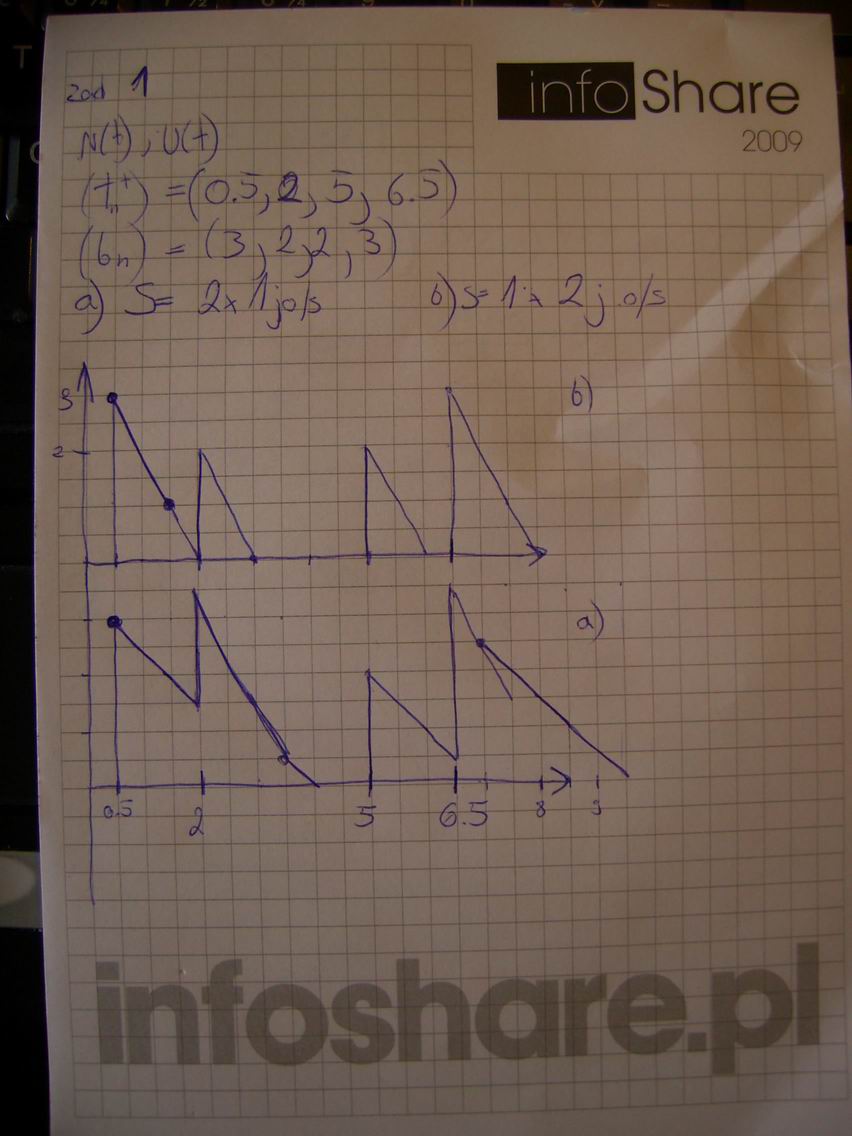 infoShare
2009
zad 1
N(t), U(t)
(tn+) = (0.5, 2, 5, 6.5)
(bn) = (3, 2, 2, 3)
a) S= 2x 1 jo/s b) S= 1x 2 j.o/s
b)
3
2
a)
0.5 2 5 6.5 8 9
infoshare.pl